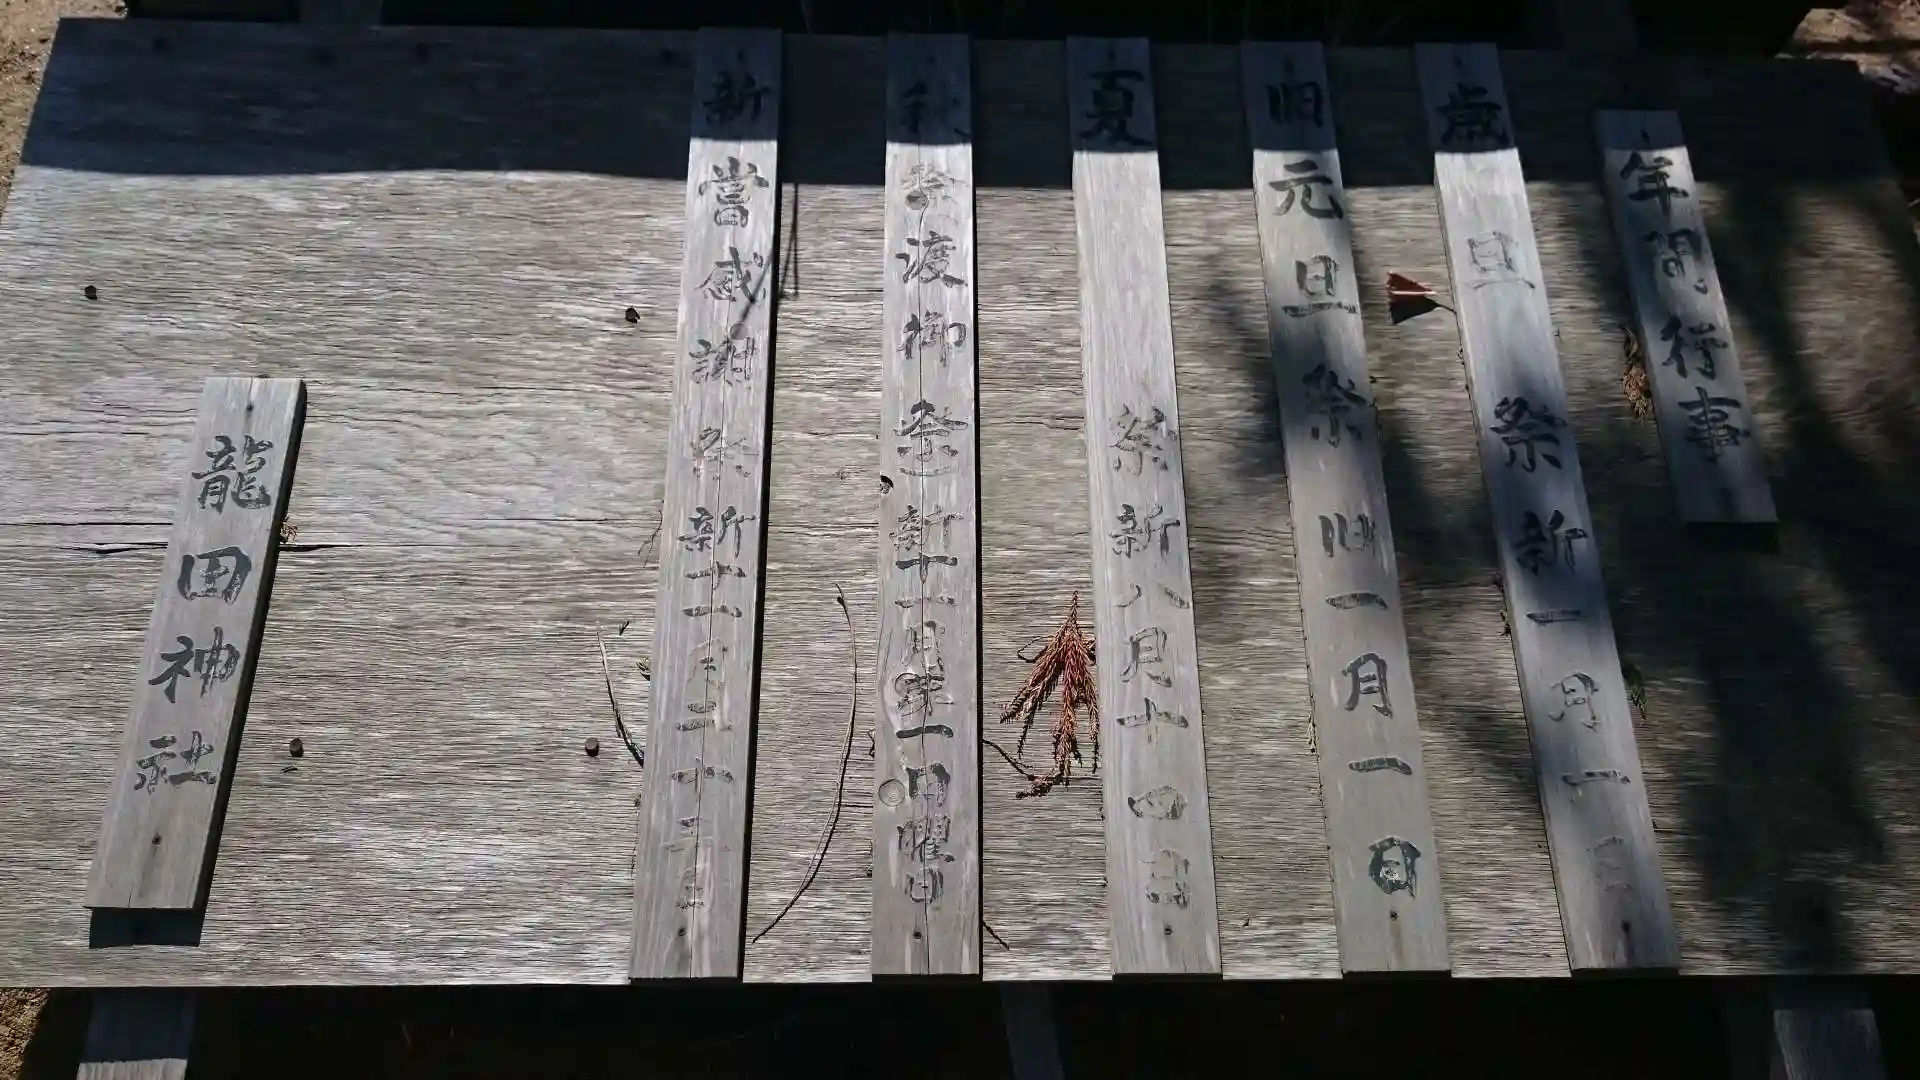 年間行事
歳旦祭新一月一日
旧元旦祭旧一月一日
夏祭新八月十四日
秋祭渡御祭新十一月第一日曜日
新嘗感謝祭新十一月二十三日
龍田神社